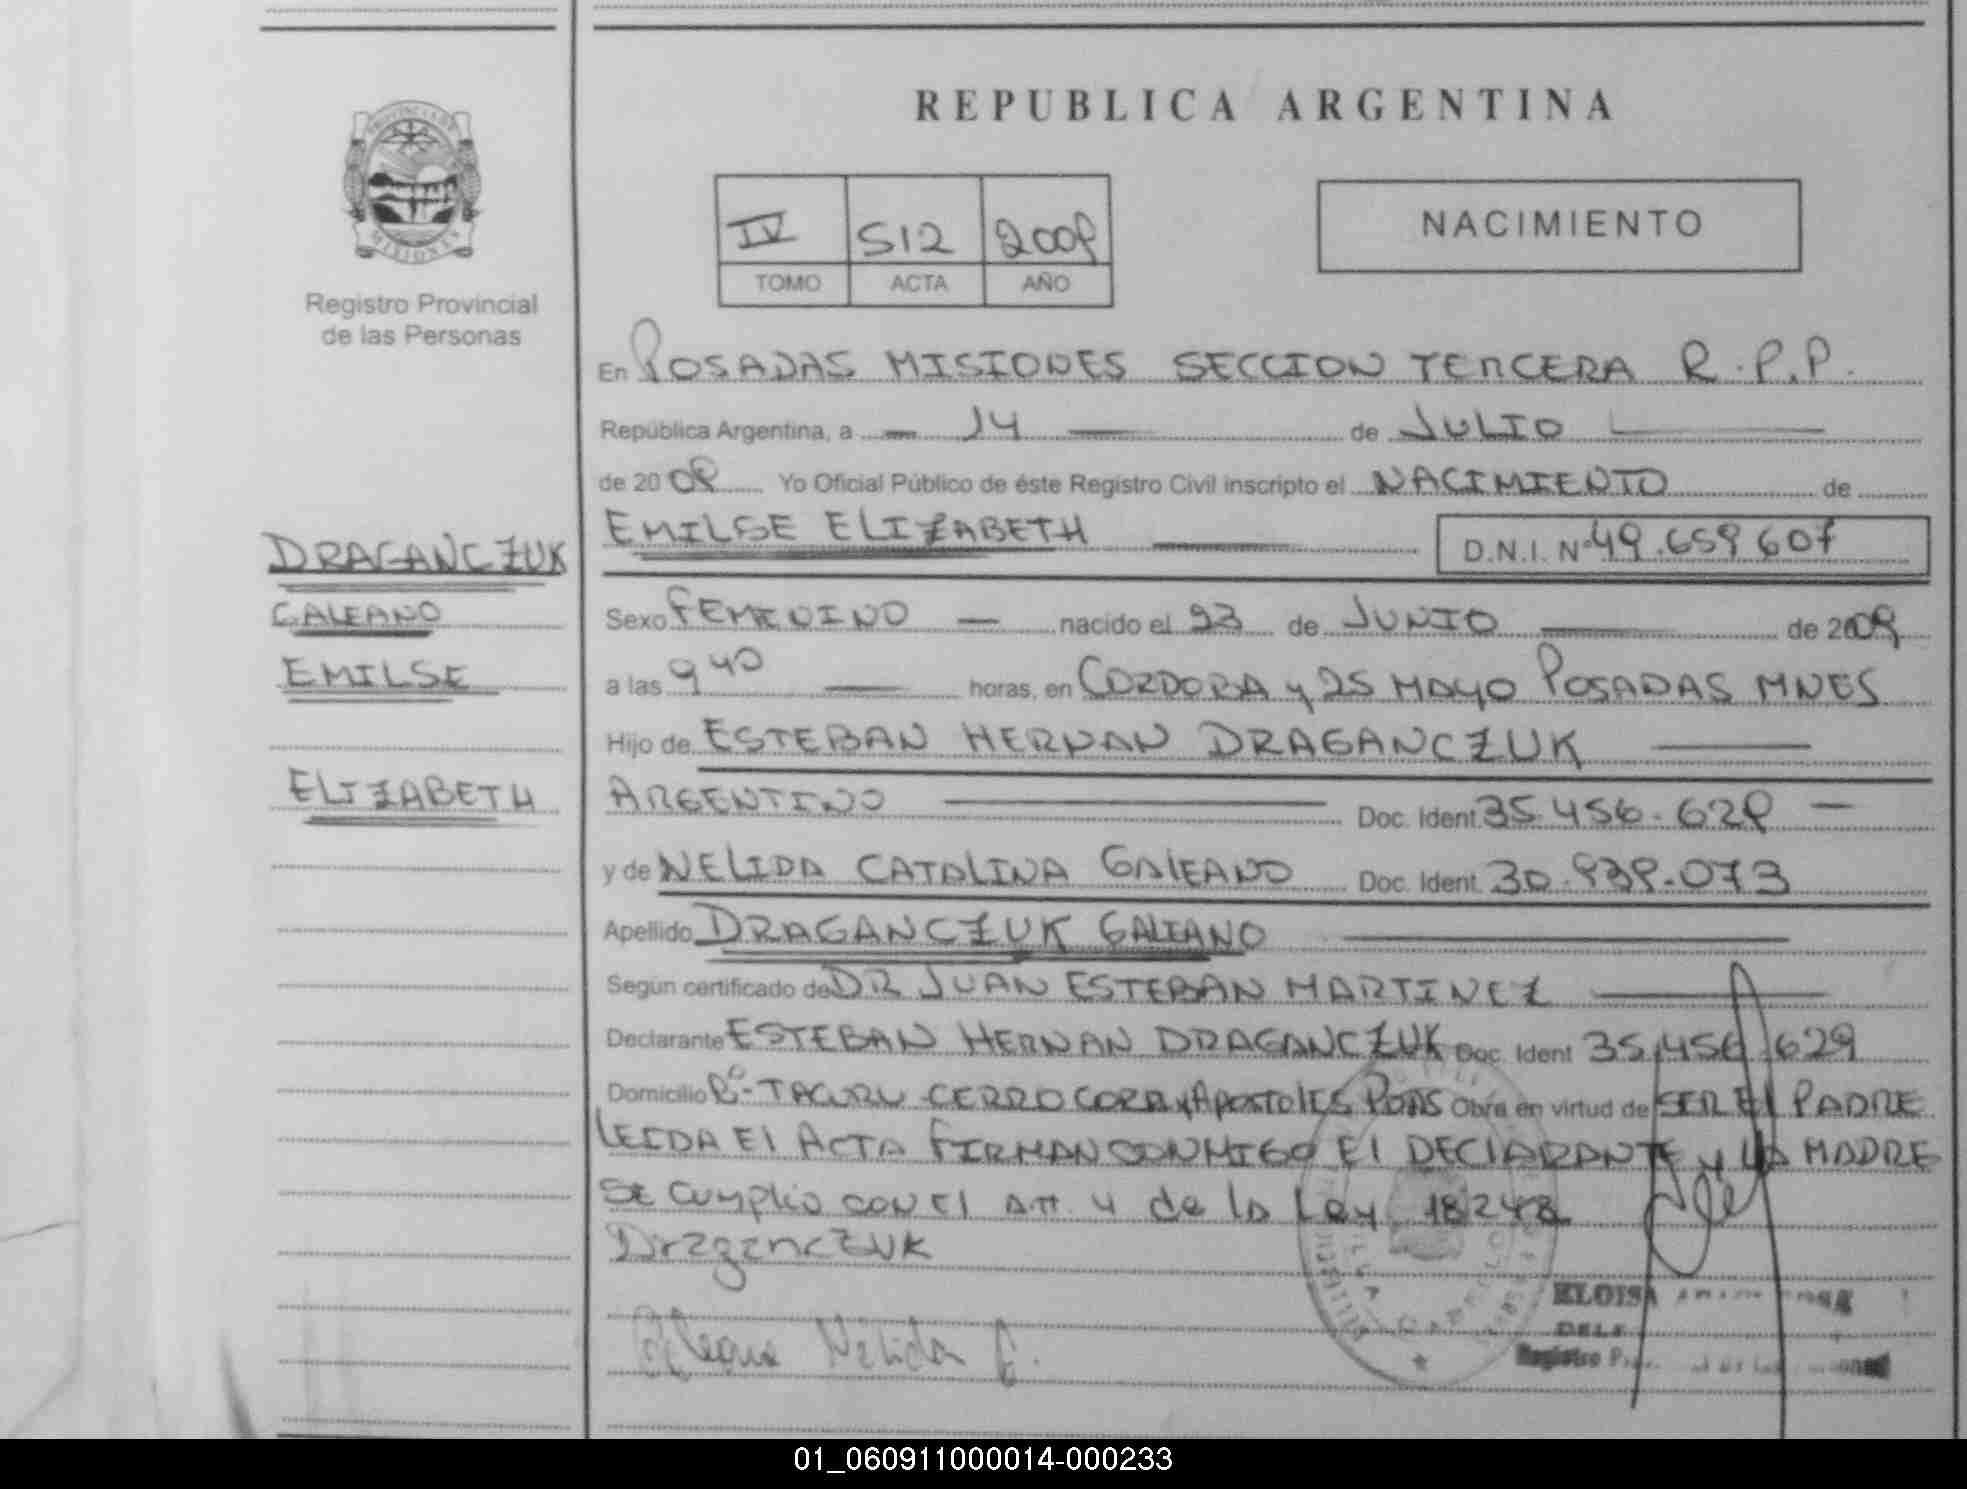 REPUBLICA ARGENTINA
PROVINCIA DE MISIONES
Registro Provincial
de las Personas
IV 512 2009
TOMO ACTA AÑO
NACIMIENTO
En POSADAS MISIONES SECCION TERCERA R.P.P.
República Argentina, a 14 de JULIO
de 2009 Yo Oficial Público de éste Registro Civil inscripto el NACIMIENTO de
EMILSE ELIZABETH D.N.I. Nº 49.659607
DRAGANCZUK
GALEANO
EMILSE
ELIZABETH
Sexo FEMENINO nacido el 23 de JUNIO de 2009
a las 9 40 horas, en CORDOBA y 25 MAYO POSADAS MNES
Hijo de ESTEBAN HERNAN DRAGANCZUK
ARGENTINO Doc. Ident. 35.456.629
y de NELIDA CATALINA GALEANO Doc. Ident. 30.939.073
Apellido DRAGANCZUK GALEANO
Según certificado de DR JUAN ESTEBAN MARTINEZ
Declarante ESTEBAN HERNAN DRAGANCZUK Doc. Ident 35.456.629
Domicilio Bº TACURU CERRO CORA y APOSTOLES POSAS Obra en virtud de SER El PADRE
LEIDA El ACTA FIRMAN CONMIGO El DEClARANTE y LA MADRE
SE Cumplio con El Art. 4 de la Ley 18248
Draganczuk
Nelida C.
ELOISA
Registro
01_060911000014-000233